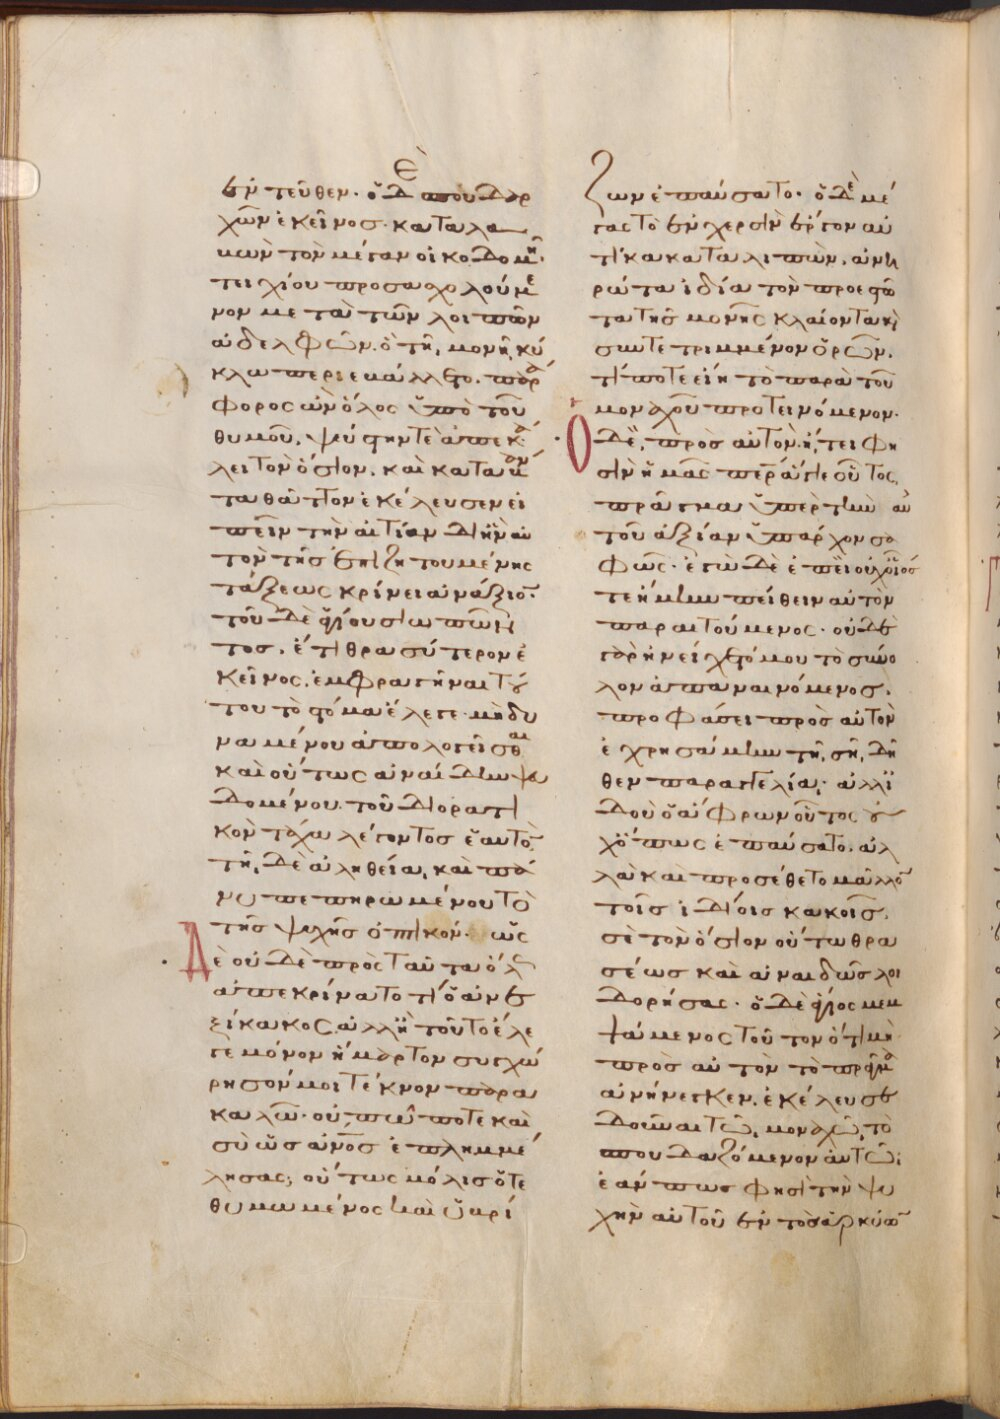 ἐντεῦθεν· ὁ δὲ σπουδάρ
χων ἐκεῖνος καταλα
μὼν τὸν μέγαν οἰκοδομῆ
τειχίου προσασχολούμε
νον μετὰ τῶν λοιπῶν
ἀδελφῶν· ὃ τῆ μονῆ κύ
κλω περιεκάλλετο· παρά
φορος ὢν ὅλος ὑπὸ τοῦ
θυμοῦ, ψεύστην τε ἀπεκά
λει τὸν ὅσιον, καὶ κατα
τὰ θᾶττον ἐκέλευσεν εἰ
πεῖν τὴν αἰτίαν δι' ἣν αὐ
τὸν τῆς ἐπιζητουμένης
τάξεως κρίνει ἀνάξιον·
τοῦ δὲ ἁγίου σιωπῶν
τος, ἔτι θρασύτερον ἐ
κεῖνος, ἐμφραγῆναι τού
του τὸ στόμα ἔλεγε μὴ δυ
ναμένου ἀπολογεῖσθαι
καὶ οὕτως ἀναίδην ψευ
δομένου τοῦ διορατι
κὸν τάχα λέγοντος ἑαυτόν·
τῆ δὲ ἀληθεία, καὶ πά
νυ πεπηρωμένου τὸ
τῆς ψυχῆς ὀπτικόν· ὡς
δὲ οὐδὲ πρὸς ταῦτα ὅλως
ἀπεκρίνατο τι ὁ ἀνε
ξίκακος, ἀλλ' ἢ τοῦτο ἔλε
γε μόνον ἥμαρτον συγχώ
ρησόν μοι τέκνον παρα
καλῶ· οὐ πώποτε καὶ
σὺ ὡς ἄνος ἐπλημμέ
λησας; οὕτως μόλις ὅ τε
θυμωμένος καὶ ὑβρί
ζων ἐπαύσατο· ὁ δὲ μέ
γας τὸ ἐν χερσὶν ἔργον αὐ
τίκα καταλιπὼν, ἀνη
ρώτα ἰδία τὸν προεστῶ
τα τῆς μονῆς κλαίοντα καὶ
συντετριμμένον ὁρῶν,
τί ποτε εἴη τὸ παρὰ τοῦ
μοναχοῦ προτεινόμενον·
Ὁ δὲ, πρὸς αὐτὸν ἤτει φη
σὶν ἡμᾶς πάτερ ἅγιε οὗτος,
πρᾶγμα ὑπὲρ τὴν αὐ
τοῦ ἀξίαν ὑπάρχον σα
φῶς· ἐγὼ δὲ ἐπεὶ οὐχ οἷός
τε ἤμην πείθειν αὐτὸν
παραιτούμενος· οὐδὲ
γὰρ ἠνείχετό μου τὸ σύνο
λον ἀπαναινόμενος,
προφάσει πρὸς αὐτὸν
ἐχρησάμην τῆ σῆ δῆ
θεν παραγγελία· ἀλλ' ἰ
δοὺ ὁ ἄφρων οὗτος οὐ
χ' ὅπως ἐπαύσατο, ἀλ
λὰ καὶ προσέθετο μᾶλλον
τοῖς ἰδίοις κακοῖς,
σὲ τὸν ὅσιον οὕτω θρα
σέως καὶ ἀναιδῶς λοι
δορήσας· ὁ δὲ ἅγιος μεμ
ψάμενος τοῦτον ὅτι μὴ
πρὸς αὐτὸν τὸ πρᾶγμα
ἀνήνεγκεν, ἐκέλευσε
δοῦναι τῶ μοναχῶ τὸ
σπουδαζόμενον αὐτῶ·
ἐάν πως φησὶ τὴν ψυ
χὴν αὐτοῦ ἐν